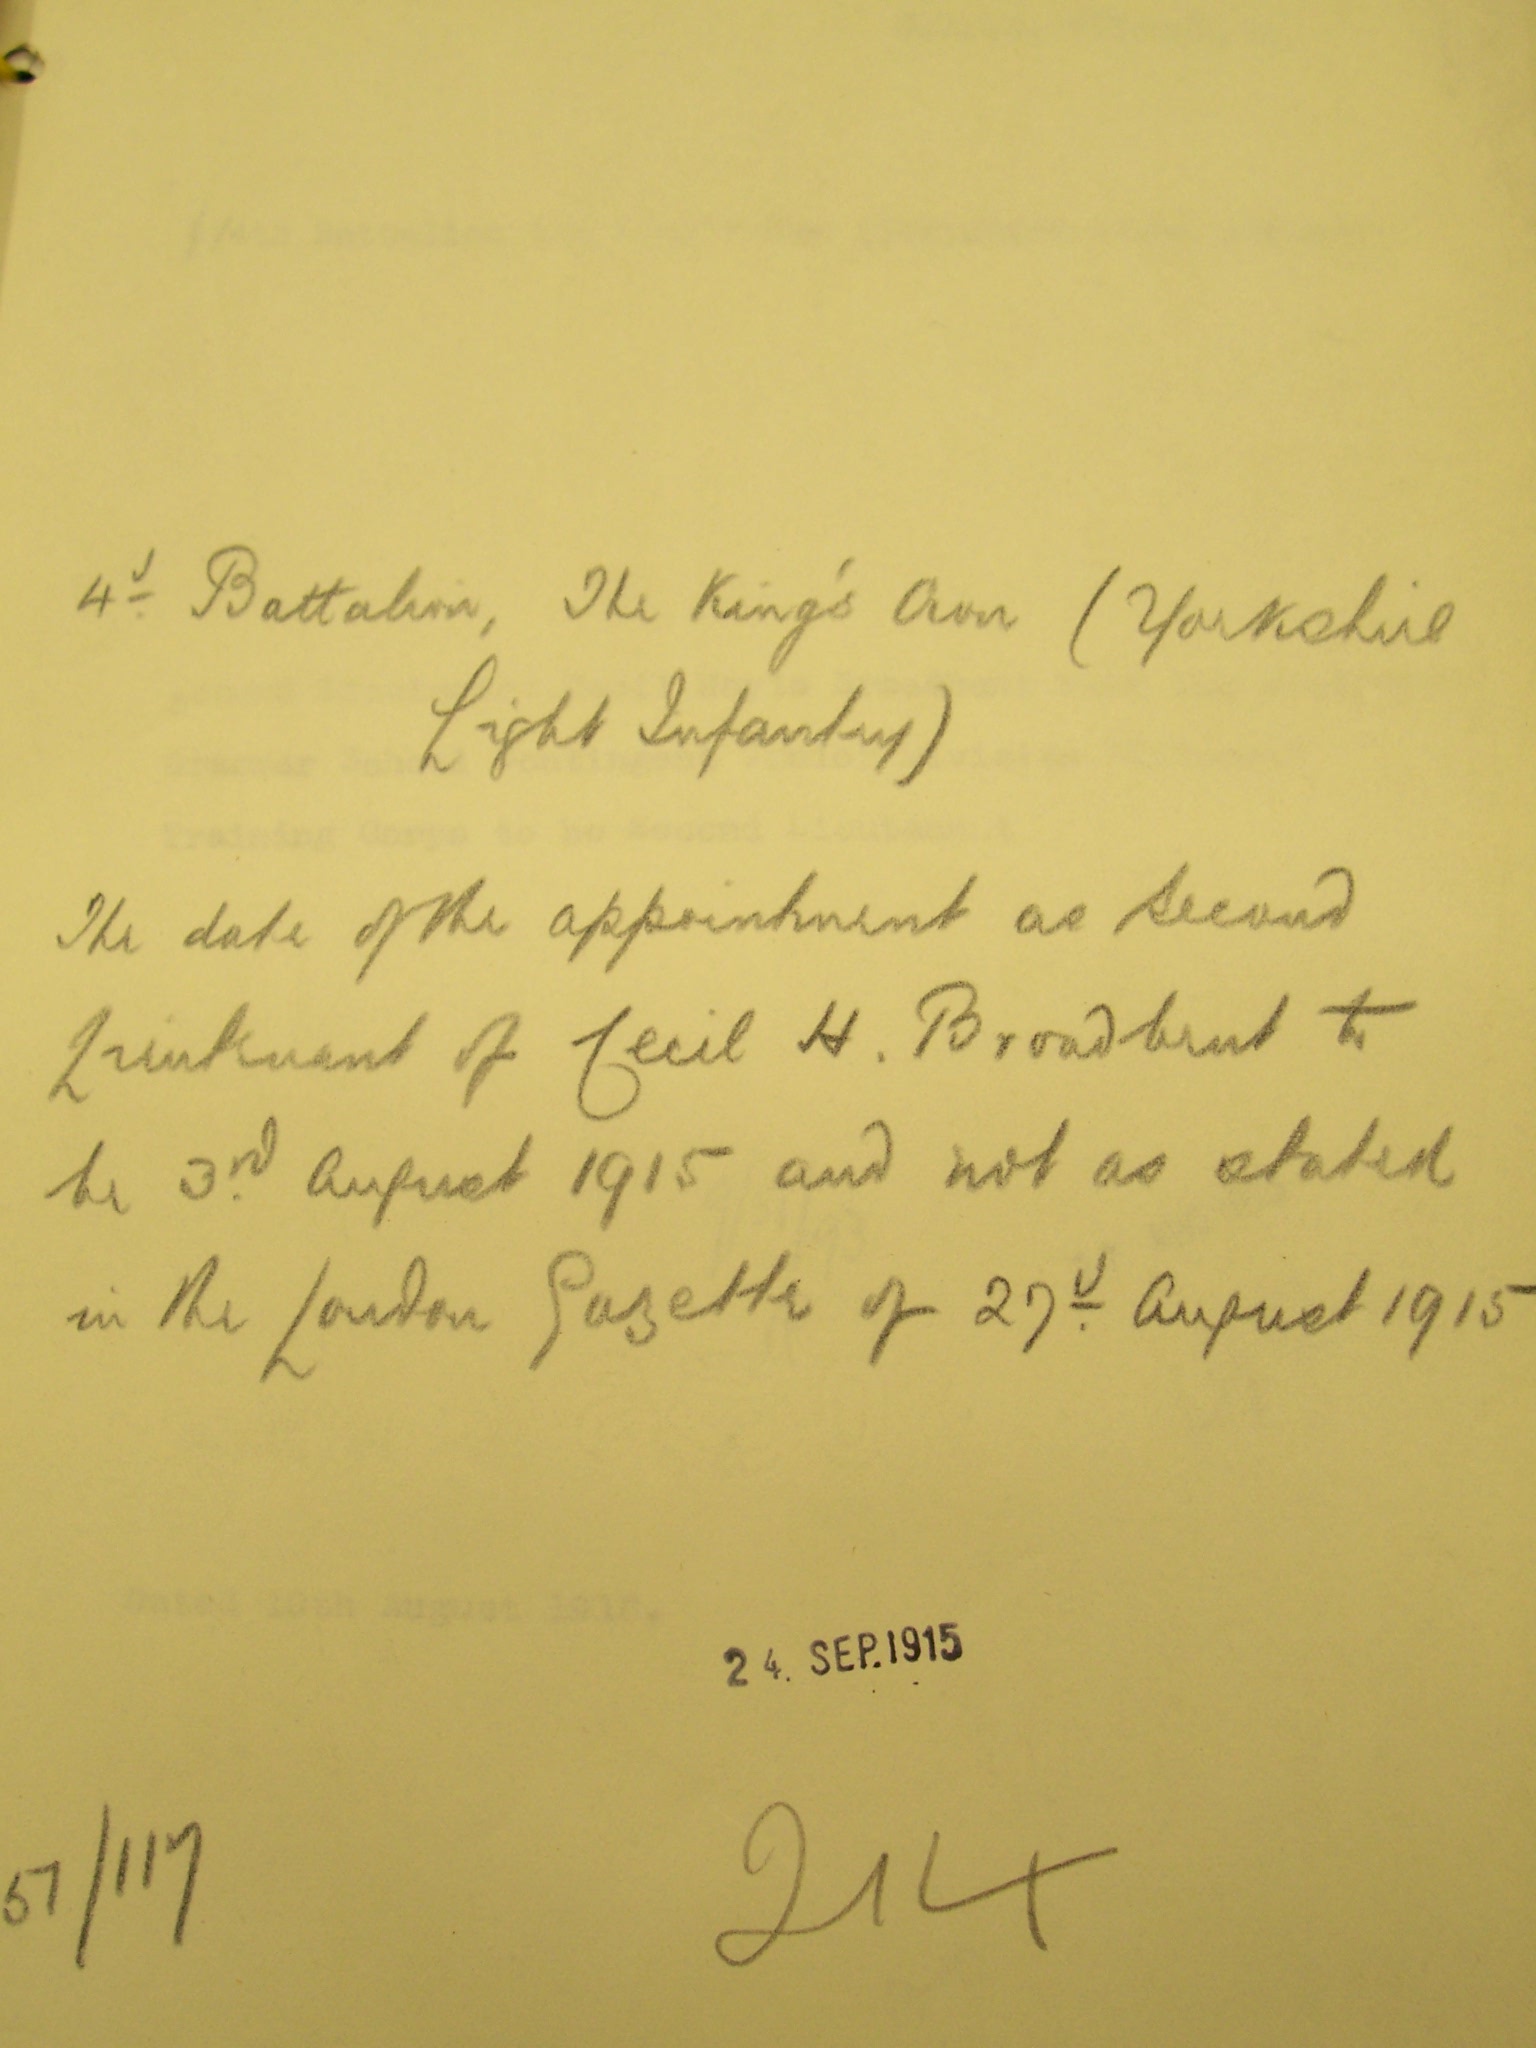 4th Battalion, The King's Own (Yorkshire
Light Infantry)
Training Corps to be Second Lieutenant
The date of the appointment as Second
Lieutenant of Cecil H. Broadbent to
be 3rd August 1915 and not as stated
in the London Gazette of 27th August 1915
24. SEP. 1915
57/117
214